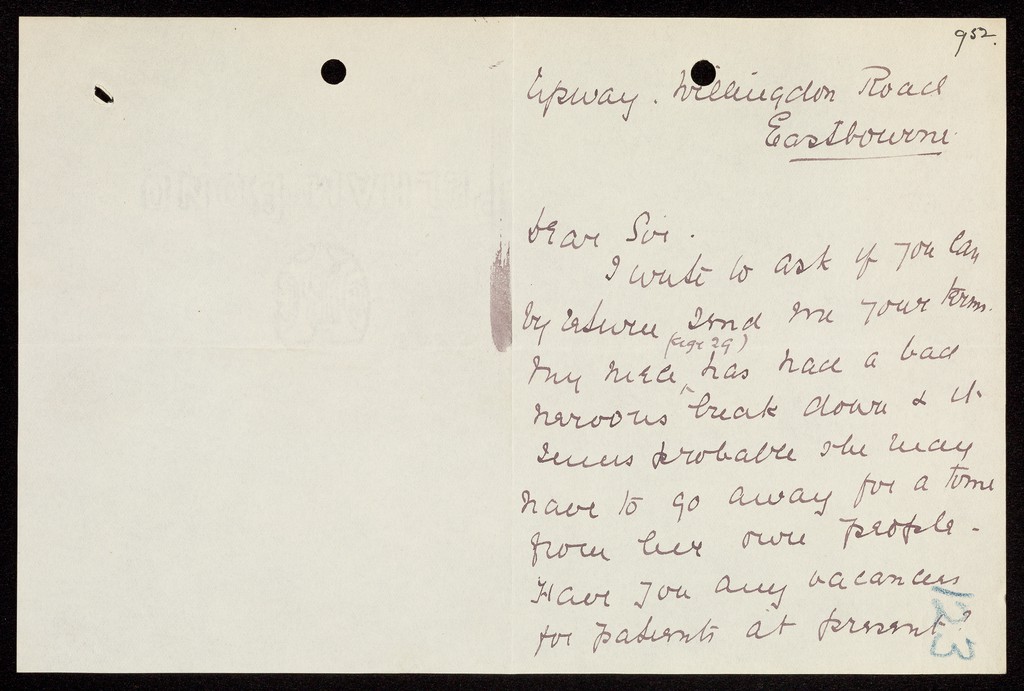 952.
Upway. Willingdon Road
Eastbourne.
Dear Sir.
I write to ask if you can
by return send me your terms.
(age 29)
My niece has had a bad
nervous break down & it
seems probable she may
have to go away for a time
from her own people -
Have you any vacancies
for patients at present?
123